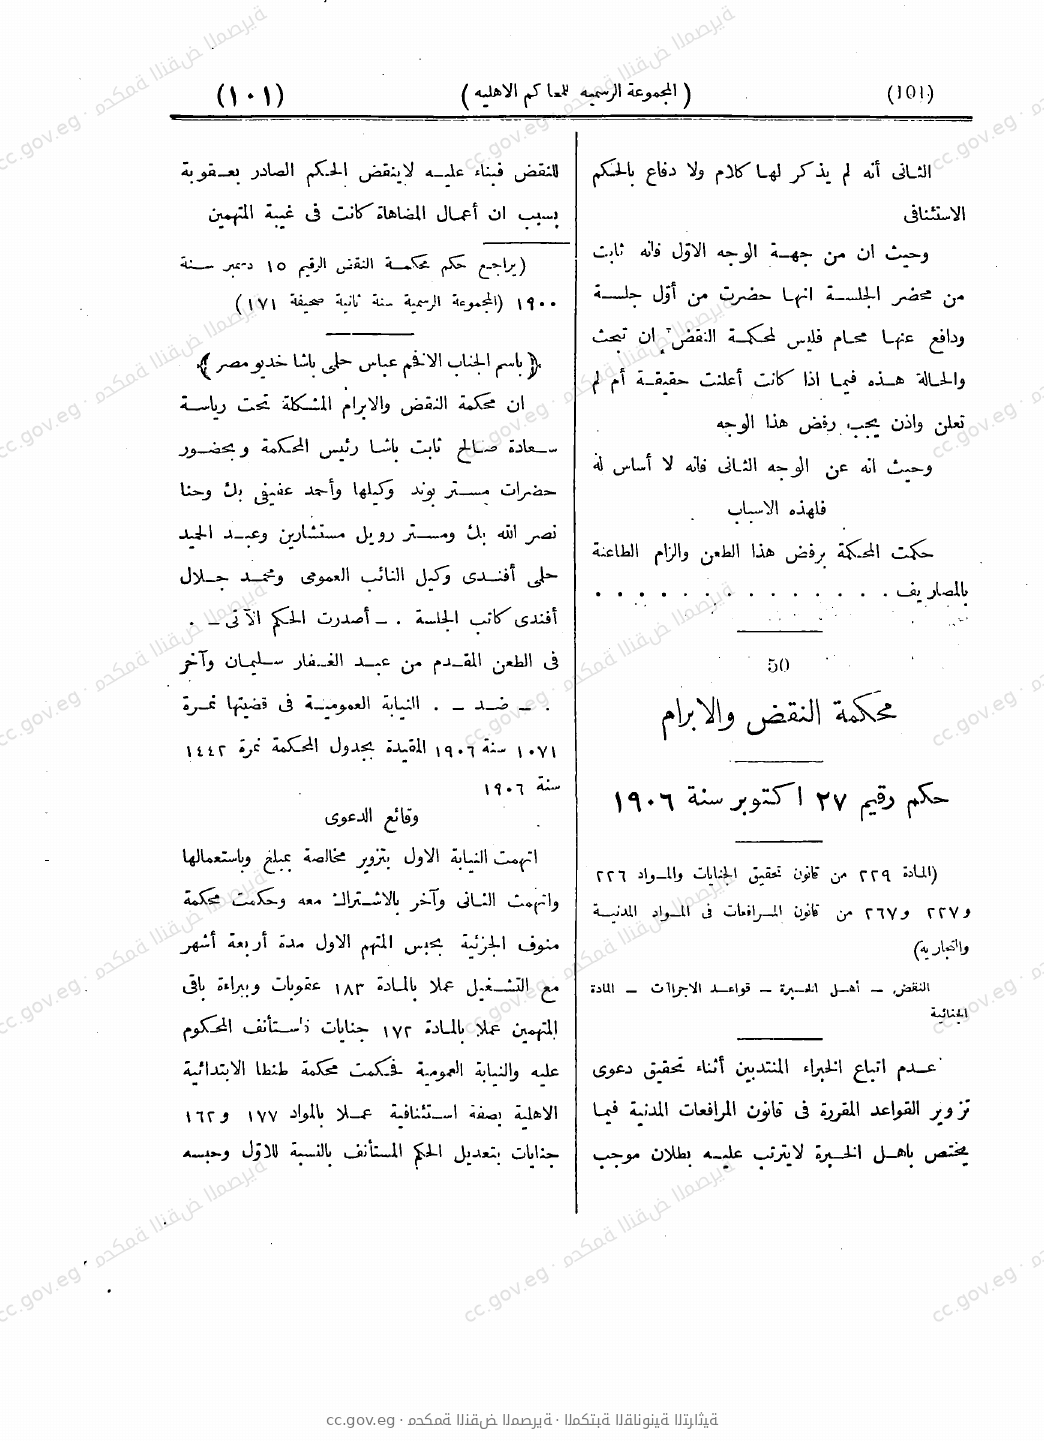 (101) ( المجموعة الرسمية للمحاكم الاهلية ) (١٠١)
الثانى أنه لم يذكر لهـا كلام ولا دفاع بالحكم
الاستئنافى
وحيث ان من جهـة الوجه الاوّل فانه ثابت
من محضر الجلسـة انهـا حضرت من أوّل جلسـة
ودافع عنهـا محـام فليس لمحكمـة النقض ان تبحث
والحـالة هـذه فيمـا اذا كانت أعلنت حقيقـة أم لم
تعلن واذن يجب رفض هذا الوجه
وحيث انه عن الوجه الثانى فانه لا أساس له
فلهذه الاسباب
حكمت المحكمة برفض هذا الطعن والزام الطاعنة
بالمصاريف . . . . . . . . . . . . . .
50
محكمة النقض والابرام
حكم رقيم ٢٧ اكتوبر سنة ١٩٠٦
(المـادة ٢٢٩ من قانون تحقيق الجنايات والمـواد ٢٢٦
و٢٢٧ و٢٦٧ من قانون المـرافعات فى المـواد المدنيـة
والتجارية)
النقض ـ أهـل الخـبرة ـ قواعـد الاجراآت ـ المادة
الجنائية
عـدم اتباع الخبراء المنتدبين أثناء تحقيق دعوى
تزوير القواعد المقررة فى قانون المرافعات المدنية فيمـا
يختص باهـل الخـبرة لايترتب عليـه بطلان موجب
للنقض فبناء عليـه لاينقض الحكم الصادر بعـقوبة
بسبب ان أعمـال المضاهاة كانت فى غيبة المتهمين
(يراجع حكم محكمـة النقض الرقيم ١٥ دسمبر سـنة
١٩٠٠ (المجموعة الرسمية سنة ثانية صحيفة ١٧١)
﴿ باسم الجناب الافخم عباس حلمى باشا خديو مصر ﴾
ان محكمة النقض والابرام المشكلة تحت رياسة
سـعادة صـالح ثابت باشا رئيس المحكمة وبحضـور
حضرات مسـتر بوند وكيلها وأحمد عفيفى بك وحنا
نصر الله بك ومسـتر رويل مستشارين وعبـد المجيد
حلمى أفنـدى وكيل النائب العمومى ومحمـد جـلال
أفندى كاتب الجلسة . ـ أصدرت الحكم الآتى ـ .
فى الطعن المقـدم من عبـد الغـفار سـليمان وآخر
. ـ ضـد ـ . النيابة العموميـة فى قضيتها نمـرة
١٠٧١ سنة ١٩٠٦ المقيدة بجدول المحكمة نمرة ١٤٤٢
سنة ١٩٠٦
وقائع الدعوى
اتهمت النيابة الاول بتزوير مخالصة بمبلغ وباستعمالها
واتهمت الثـانى وآخر بالاشـتراك معه وحكمت محكمة
منوف الجزئية بحبس المتهم الاول مدة أربعة أشهر
مع التشـغيل عملا بالمـادة ١٨٣ عقوبات وببراءة باقى
المتهمين عملا بالمادة ١٧٢ جنايات فاسـتأنف المحكوم
عليه والنيابة العمومية فحكمت محكمة طنطا الابتدائية
الاهلية بصفة اسـتئنافية عمـلا بالمواد ١٧٧ و١٦٢
جنايات بتعديل الحكم المستأنف بالنسبة للاوّل وحبسه
cc.gov.eg · محكمة النقض المصرية · المكتبة القانونية التراثية